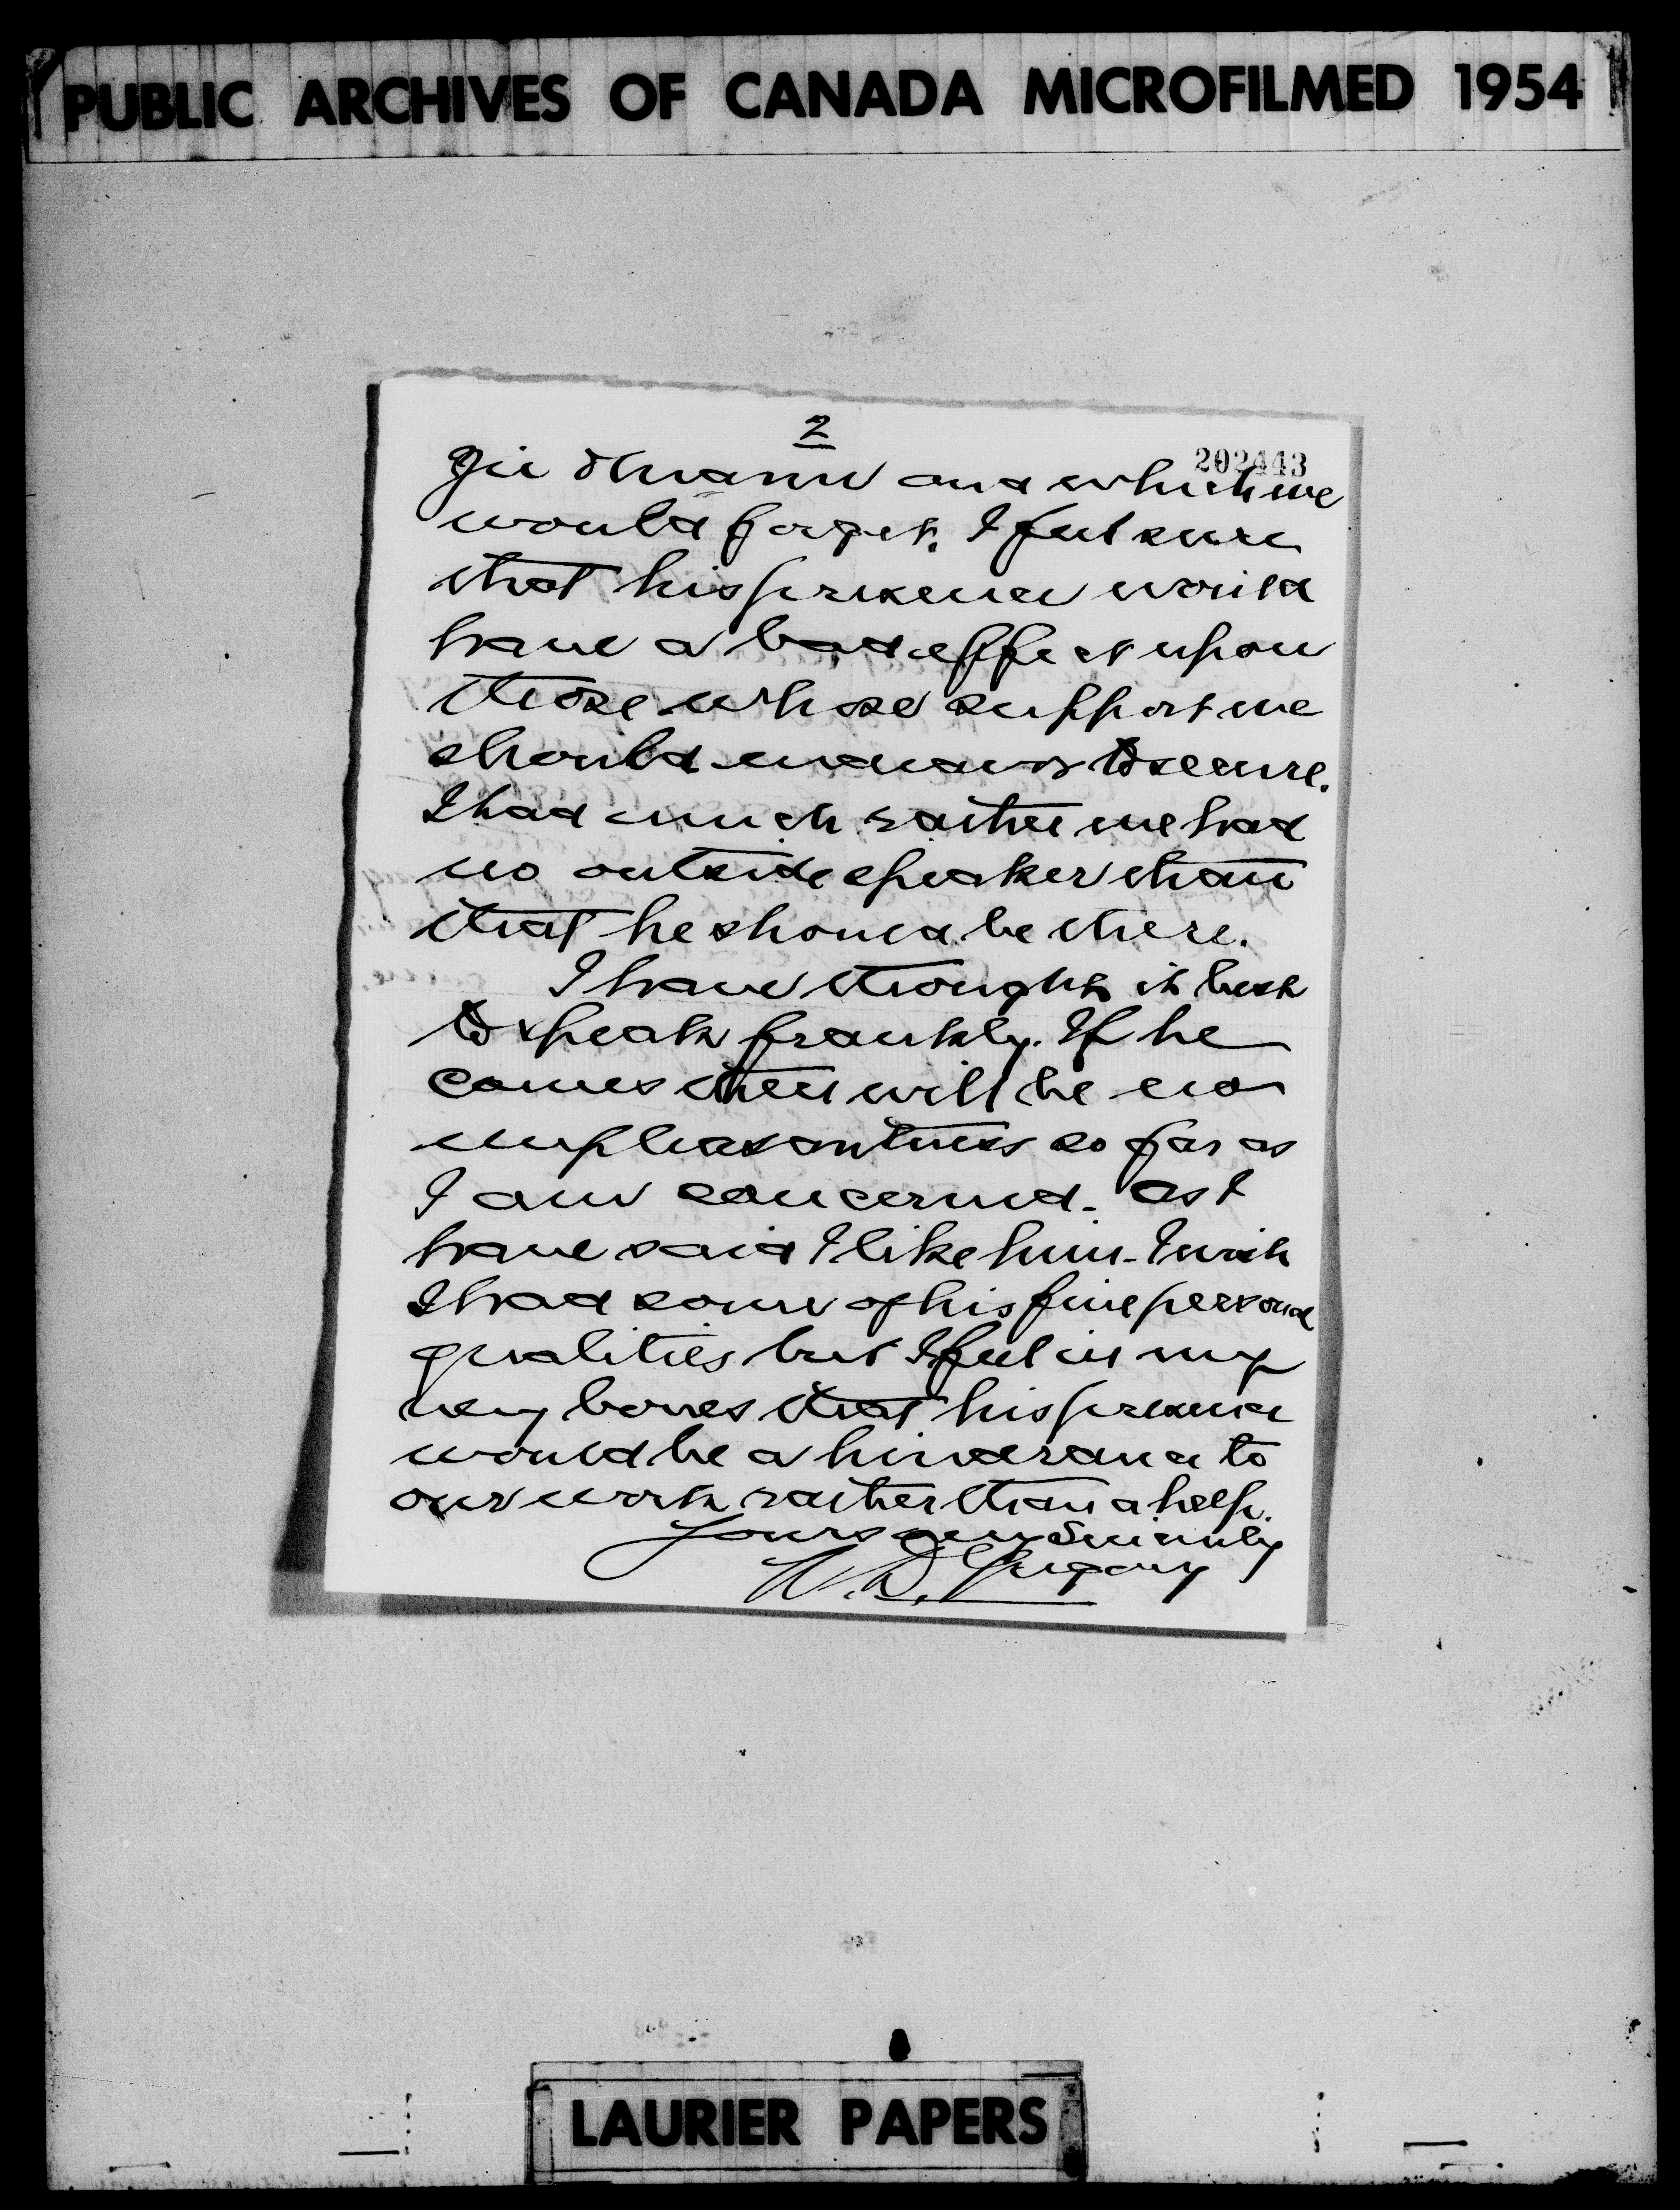 PUBLIC ARCHIVES OF CANADA MICROFILMED 1954
2
202443
and which we
would forget. I feel sure
that his presence would
have a bad effect upon
those whose support we
should endeavor to secure.
I had much rather we had
no outside speaker than
that he should be there.
I have thought it best
to speak frankly. If he
comes there will be no
unpleasantness so far as
I am concerned. As I
have said I like him. I wish
I had some of his fine personal
qualities but I feel in my
very bones that his presence
would be a hinderance to
our work rather than a help.
Yours very Sincerely
W. D. Gregory
LAURIER PAPERS